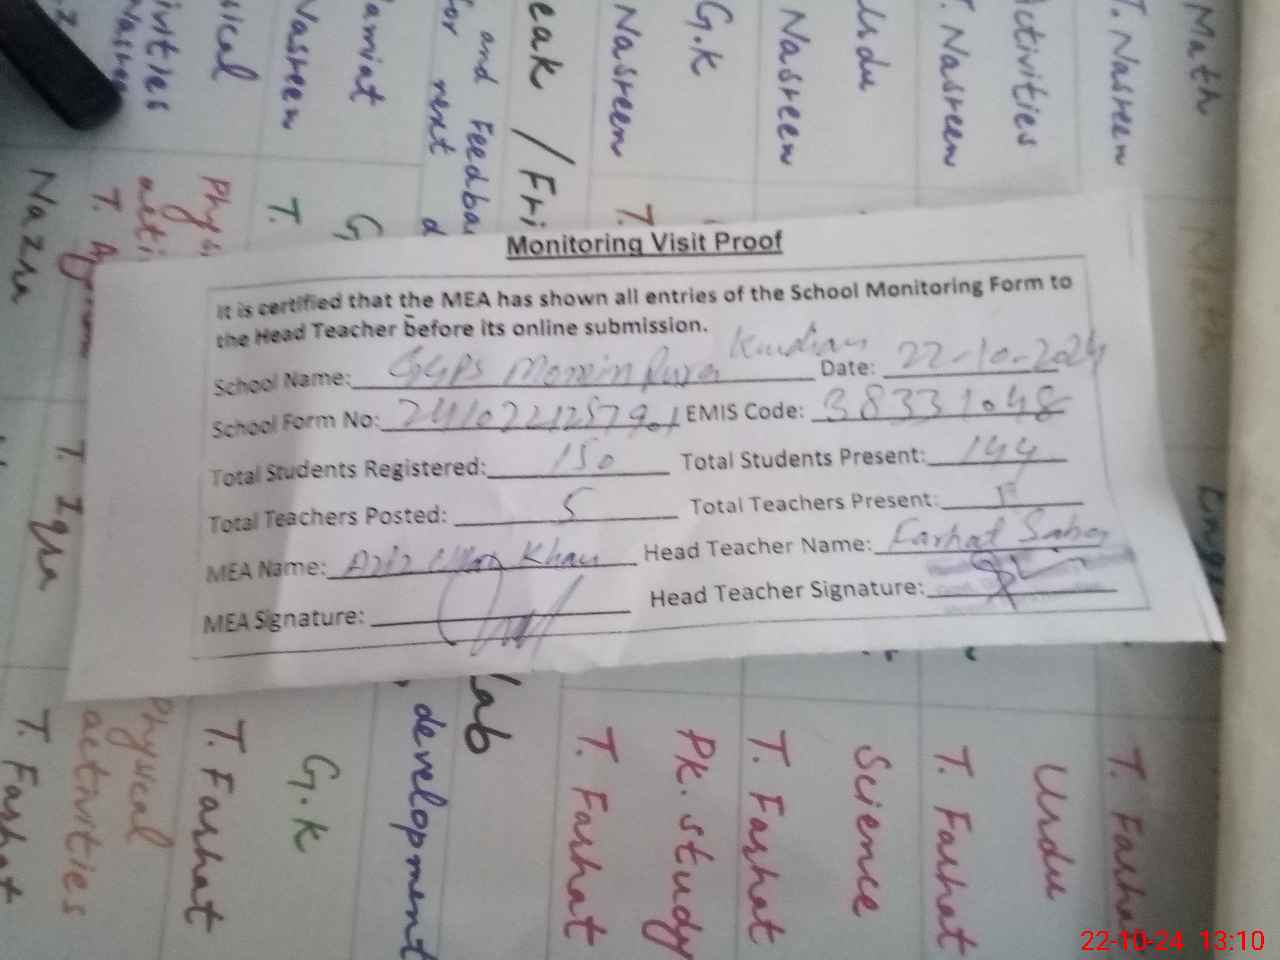 Monitoring Visit Proof
It is certified that the MEA has shown all entries of the School Monitoring Form to
the Head Teacher before its online submission.
School Name: GGPS Momin Pura Kundian Date: 22-10-2024
School Form No: EMIS Code: 38331048
Total Students Registered: 150 Total Students Present: 144
Total Teachers Posted: 5 Total Teachers Present:
MEA Name: Khan Head Teacher Name: Farhat
MEA Signature: Head Teacher Signature:
Math
T. Nasreen
Activities
T. Nasreen
Urdu
Nasreen
G.K
Nasreen
eak / Fri
and Feedba
for next d
amiat
Nasreen
sical
ivities
Nasree
T.
G
T.
Phys
acti
T.
Nazu
T. Iqra
T. Farhat
Urdu
T. Farhat
Science
T. Farhat
Pk. study
T. Farhat
lab
development
G.k
T. Farhat
Physical
activities
T. Farhat
22-10-24 13:10